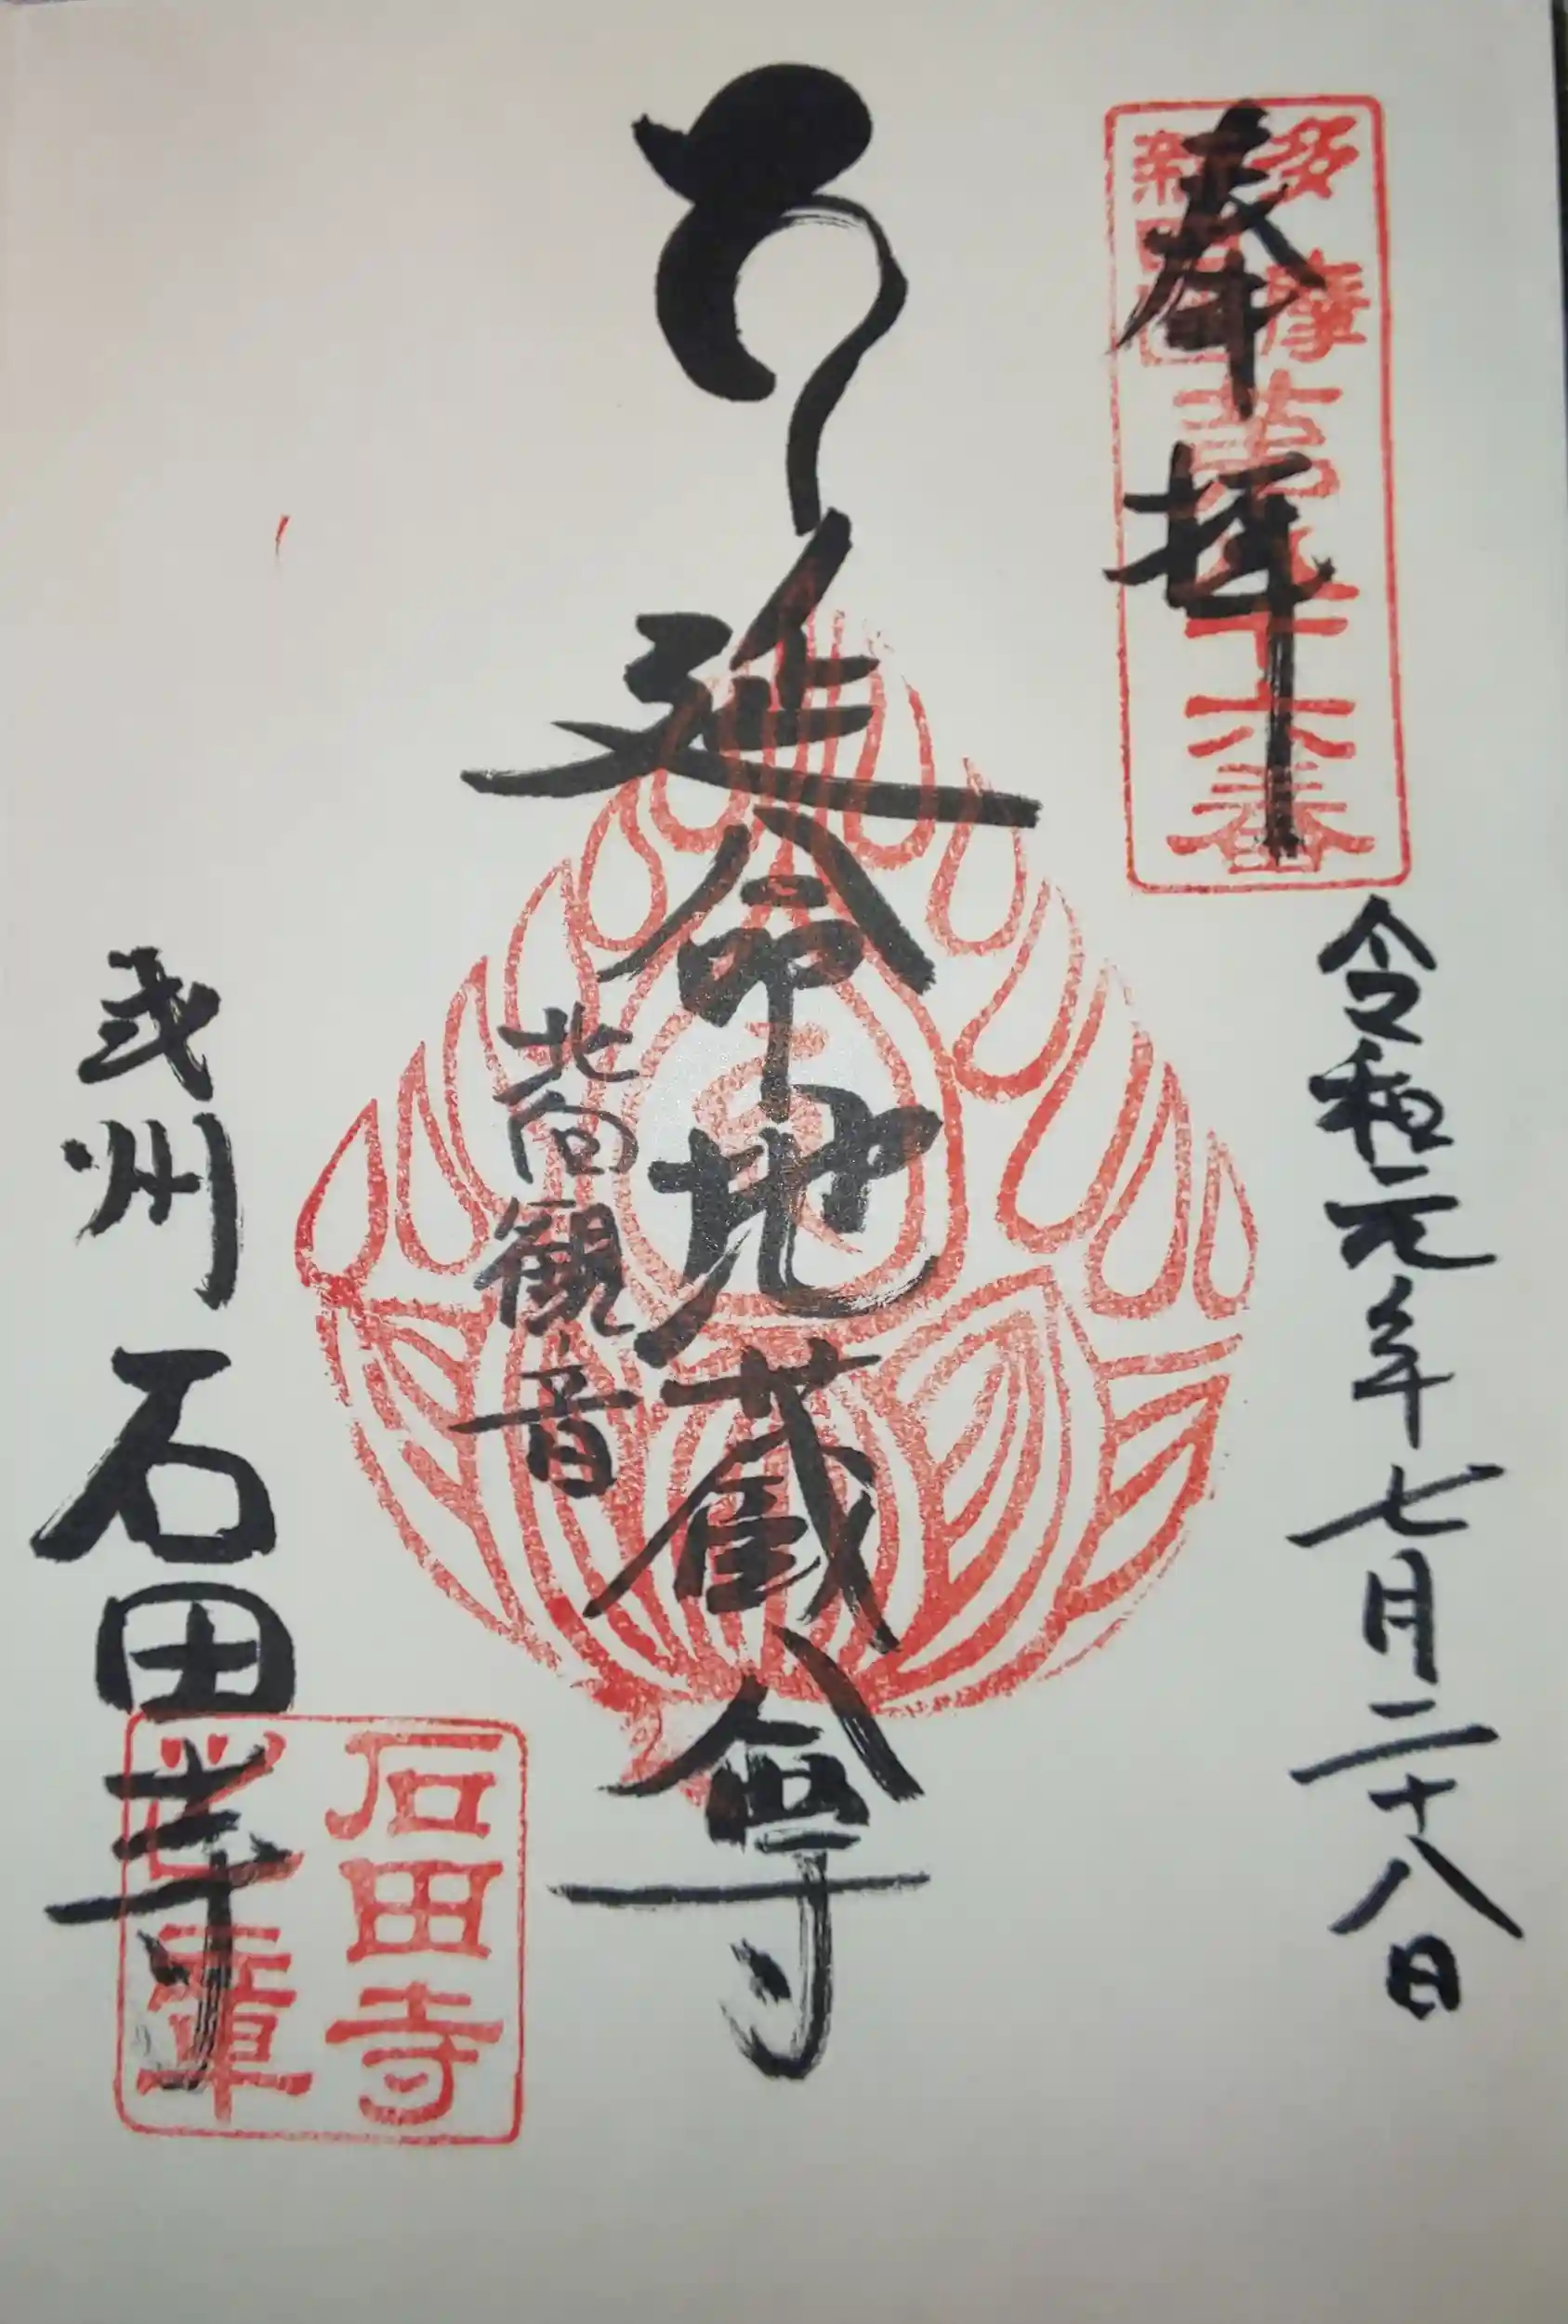 奉拝
多摩
新四国
第十六番
令和元年七月二十八日
延命地蔵尊
北向観音
武州 石田寺
石田寺